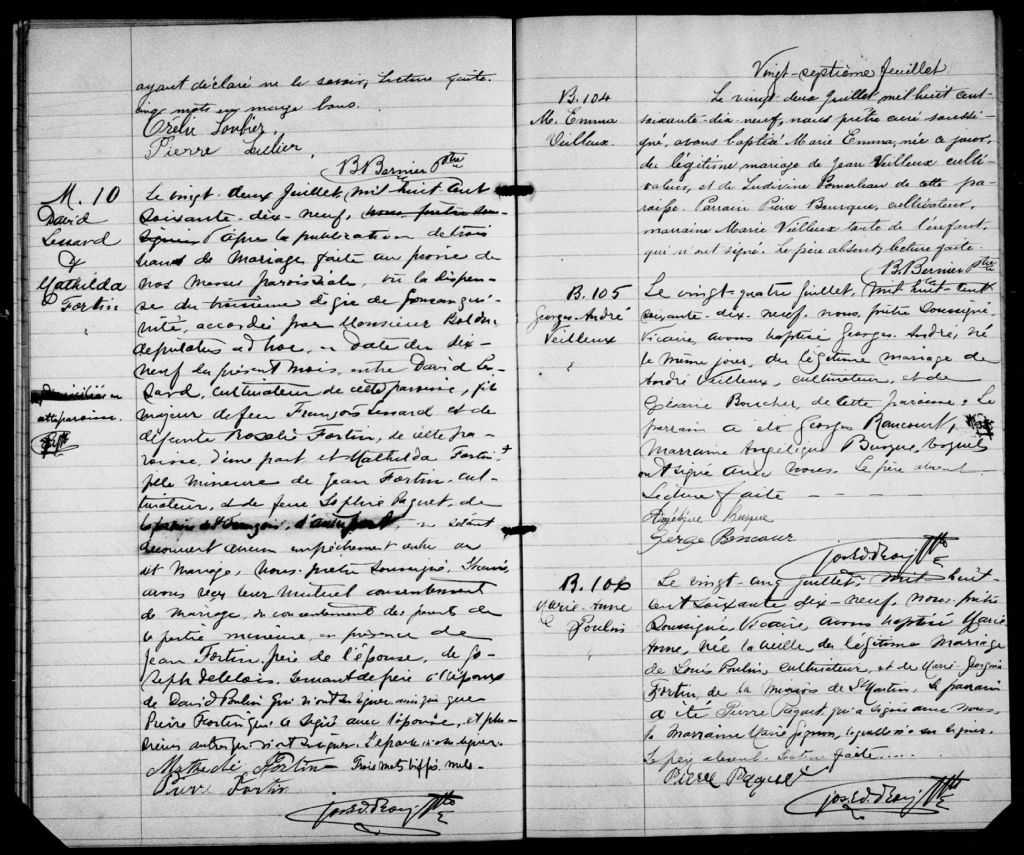 ayant déclaré ne le savoir, lecture faite.
cinq mots en marge bons.
Orélie Loubier,
Pierre Loubier,
B Bernier Ptre
M. 10
David
Lessard
&
Mathilda
Fortin
domiciliée en
cette paroisse.
Le vingt-deux Juillet, mil huit cent
soixante-dix-neuf, nous prêtre sous-
signé après la publication de trois
bans de mariage faite au prone de
nos messes paroissiales, vu la dispen-
se du troisième degré de consangui-
nité, accordée par Monsieur Bolduc
deputatus ad hoc, en date du dix-
neuf du présent mois, entre David Les-
sard, cultivateur de cette paroisse, fils
majeur de feu François Lessard et de
défunte Rosalie Fortin, de cette pa-
roisse, d'une part, et Mathilda Fortin
fille mineure de Jean Fortin cul-
tivateur, et de feue Sophie Paquet, de
d'autre part, ne s'étant
découvert aucun empêchement au
dit mariage, nous prêtre soussigné, Vicaire
avons reçu leur mutuel consentement
de mariage, du consentement des parents de
la partie mineure, en présence de
Jean Fortin père de l'épouse, de Jo-
seph servant de père à l'époux
de David Poulin qui n'ont su signer ainsi que
Pierre Fortin qui a signé avec l'épouse, et plu-
sieurs autres qui n'ont su signer. L'époux n'a su signer.
Mathilde Fortin Trois mots biffés nuls-
Pierre Fortin
Jos. Ed. Roy Ptre
Vingt-septième feuillet
B. 104
M. Emma
Veilleux.
Le vingt deux Juillet mil huit cent
soixante-dix-neuf, nous prêtre curé soussi-
gné, avons baptisé Marie Emma, née ce jour,
du légitime mariage de Jean Veilleux culti-
vateur, et de Ludivine Pomerleau de cette pa-
roisse. Parrain Pierre Bourque, cultivateur,
marraine Marie Veilleux tante de l'enfant,
qui n'ont signé. Le père absent, lecture faite.
B. Bernier Ptre
B. 105
Georges-André
Veilleux
Le vingt-quatre Juillet, mil huit cent
soixante-dix-neuf, nous, prêtre soussigné,
Vicaire, avons baptisé Georges-André, né
le même jour, du légitime mariage de
André Veilleux, cultivateur, et de
Boucher, de cette paroisse. Le
parrain a été Georges Rancourt,
Marraine Angélique Busque, lesquels
ont signé avec nous. Le père absent.
Lecture faite - - - -
Angéline Busque
Jos. Ed. Roy Ptre
B. 106
Marie-Anne
Poulin
Le vingt cinq Juillet, mil huit-
cent soixante dix-neuf, nous prêtre
soussigné Vicaire, avons baptisé Marie
Anne, née la veille du légitime mariage
de Louis Poulin, cultivateur, et de Marie Georgina
Fortin, de la mission de St Martin, le parrain
a été Pierre Paquet qui a signé avec nous,
la marraine Marie laquelle n'a su signer.
Le père absent. Lecture faite.....
Pierre Paquet
Jos. Ed. Roy Ptre